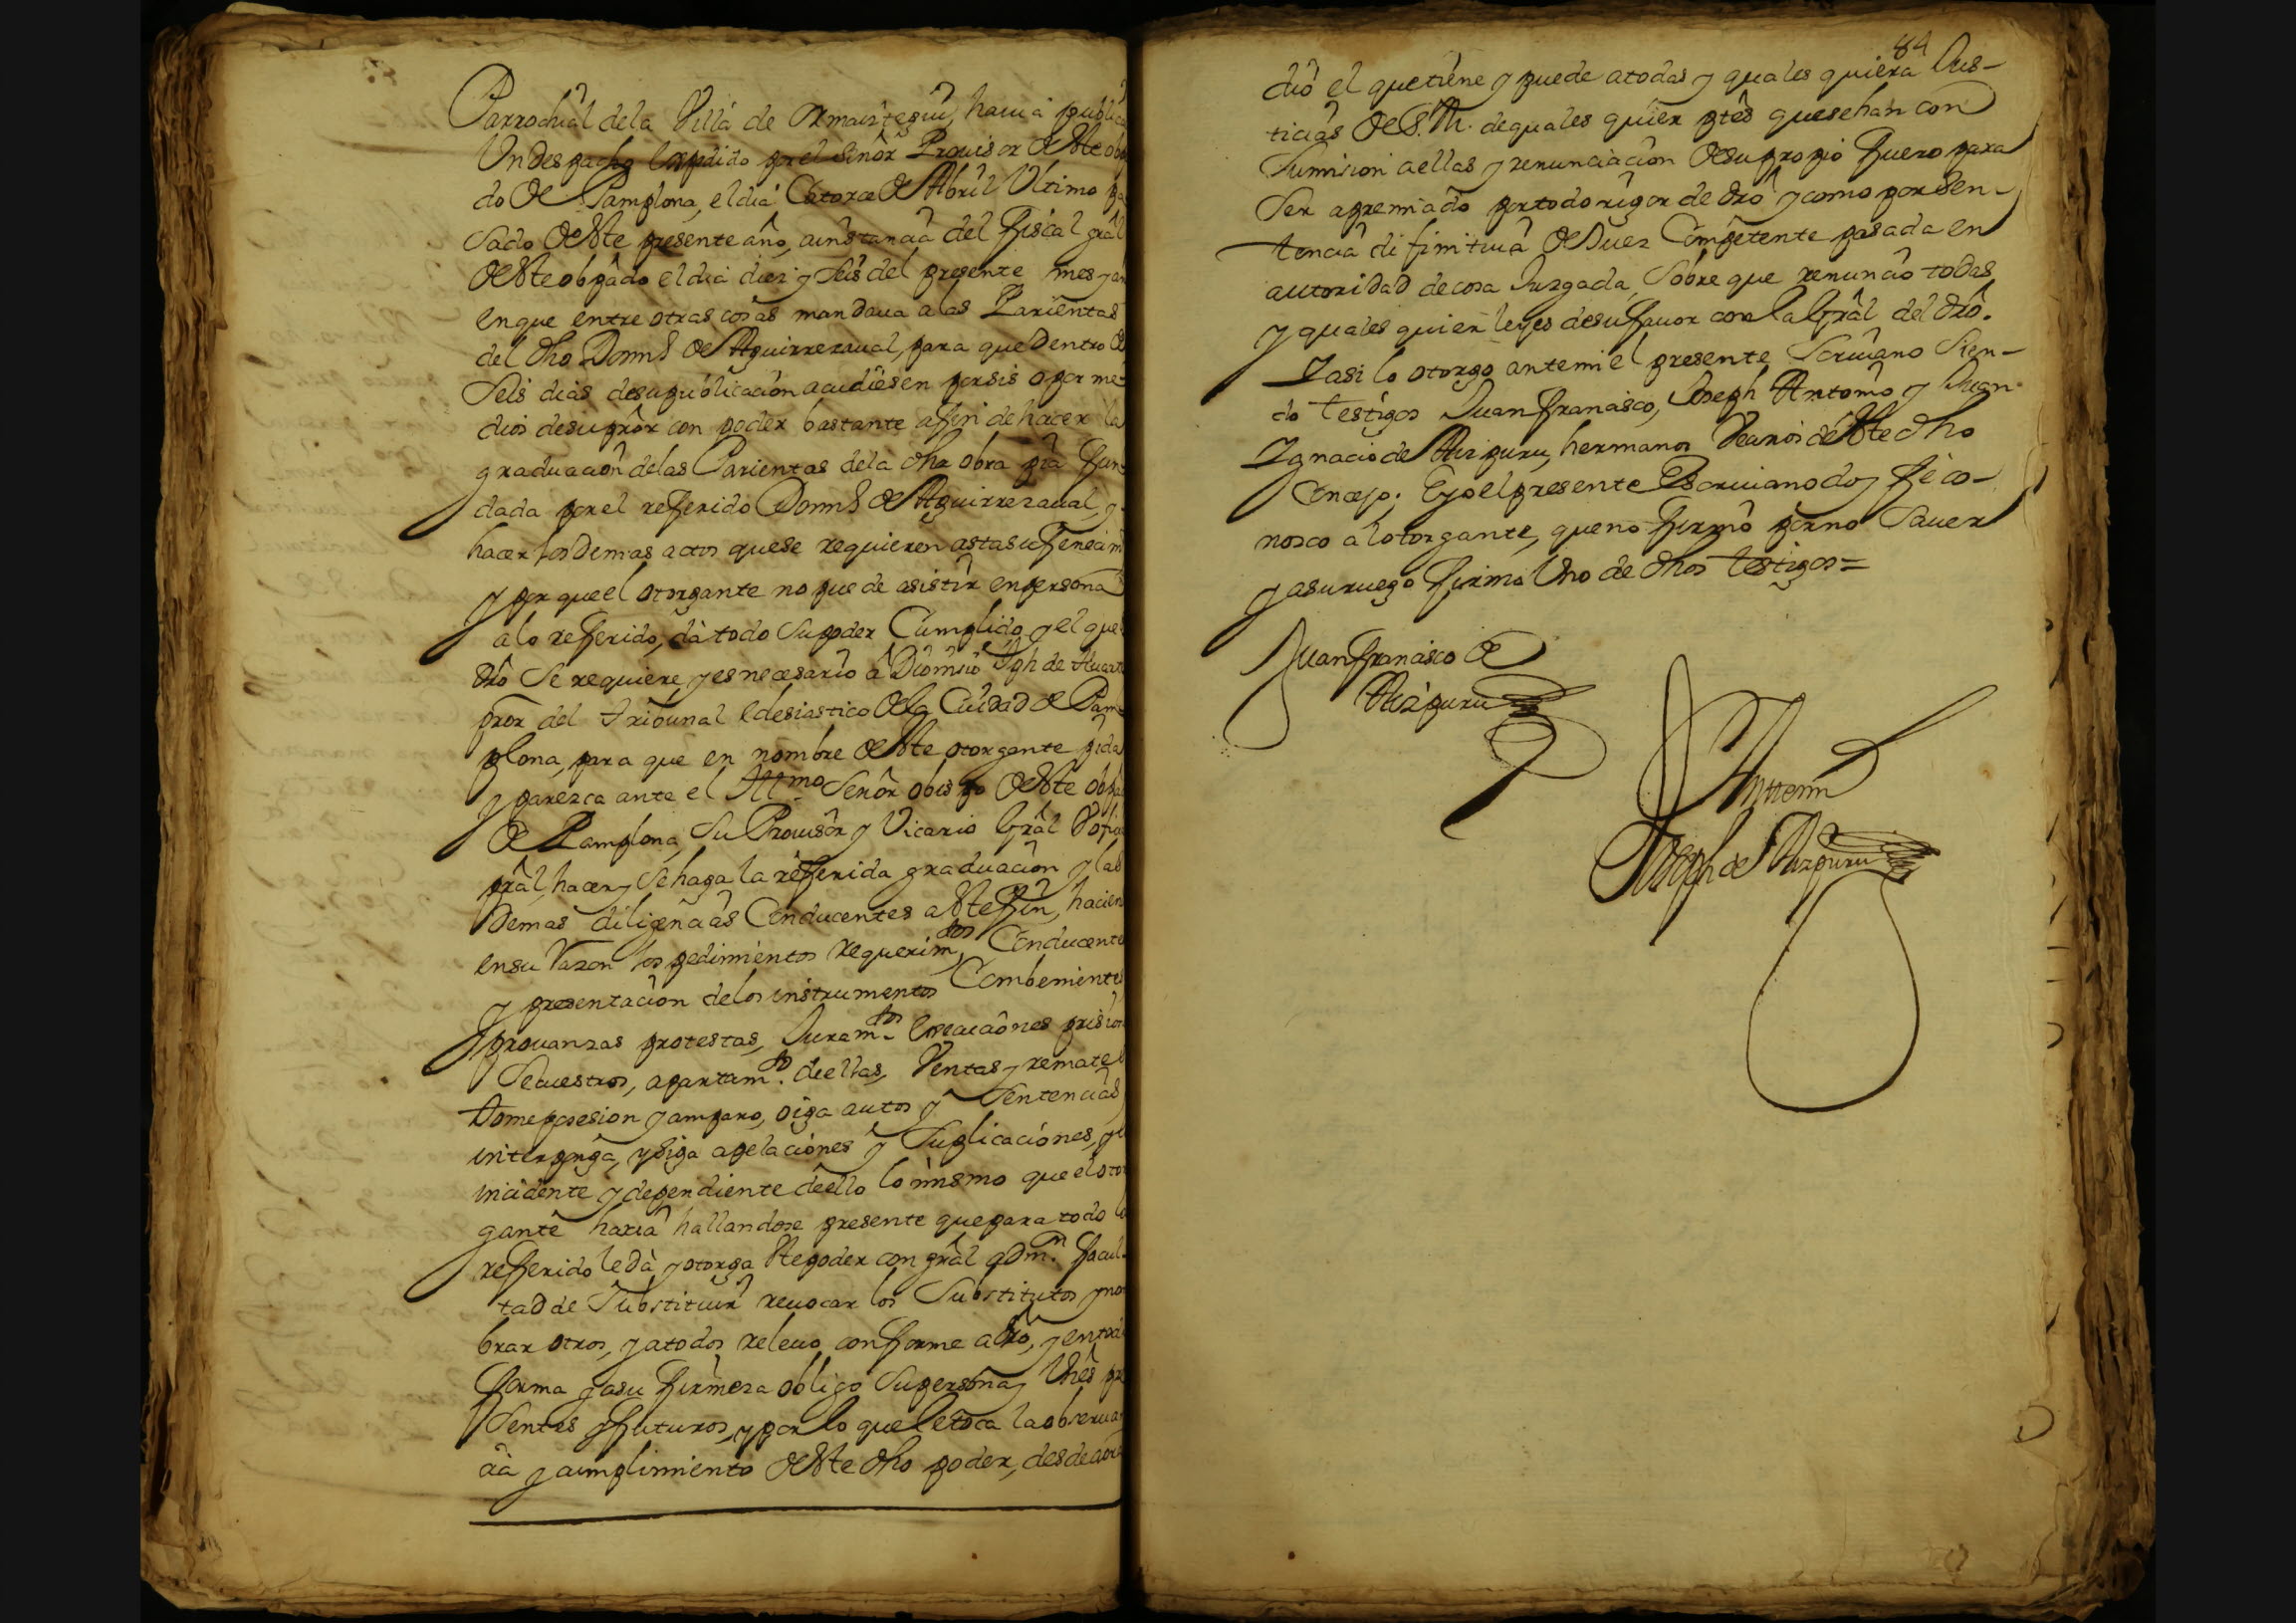 Parrochial dela Villa de Ormaiztegui, havia publica
Un Despacho expedido por el Señor Provisor deste obp
do de Pamplona, el dia Catorce de Abril Ultimo pa
sado deste presente año, ainstancia del Fiscal gral
deste obpado el dia diez y seis del presente mes y añ
enque entre otras cosas mandava alas Parientas
del dho Domº de Aguirrezaval, para que Dentro de
Seis dias desupublicacion acudiesen porsis o por me
dios desu pror con poder bastante afin de hacer la
graduacion delas Parientas dela dha obra pia fun
dada por el referido Domº de Aguirrezaval, y
hacer los Demas actos quese requieren astasufenecim
y por que el otorgante no puede asistir enpersona
alo referido, dà todo Supoder Cumplido y el que
dro Se requiere, y es necesario a Dionisio Jph de
pror del tribunal eclesiastico dela Ciudad de Pam
plona, para que en nombre deste otorgante pida
y parezca ante el Illmo Señor obispo deste obpa
de Pamplona, Su Provisor y Vicario Gral
pral, hacer y Sehaga la referida graduacion y las
Demas diligencias Conducentes a este fin, hacien
ensu Razon los pedimientos requerimtos Conducente
y presentacion delos instrumentos Combenientes
provanzas protestas, Juramtos execuciones prision
Secuestros, apartamto deellas, Ventas y remates
tome posesion y amparo, oiga autos y Sentencias
interponga, y Siga apelaciones y Suplicaciones, y l
incidente y dependiente deello lo mismo que el otor
gante haria hallandose presente quepara todo lo
referido le dà y otorga este poder con gral adm.n facul-
tad de Substituir revocar los Substitutos y nom
brar otros, y atodos relevo conforme a dro, y en tal
forma y asu firmeza obligo Supersona y Vnes pre
Sentes y futuros, y por lo que le toca la observan
cia y cumplimiento deste dho poder, desde aora
84
diò el que tiene y puede atodas y quales quiera Jus-
ticias de S.M. dequales quier ptes quesehan con
Sumision aellas y renunciacion desupropio fuero para
Ser apremiado portodo rigor de dro y como por Sen-
tencia difinitiva de Juez Competente pasada en
autoridad decosa Juzgada, Sobre que renunciò todas
y quales quier leyes desufavor con la Gral del dro.
Y asi lo otorgo antemi el presente Scrivano Sien-
do testigos Juan francisco, Joseph Antonio y Juan
Ygnacio de Aizpuru, hermanos Vecinos deste dho
Concejo. E yo el presente Escriviano doy fè co-
nosco alotorgante, que no firmò por no Saver
y asuruego firmò Uno de dhos testigos=
Juan francisco de
Aizpuru
Antemi
Joseph de Aizpuru